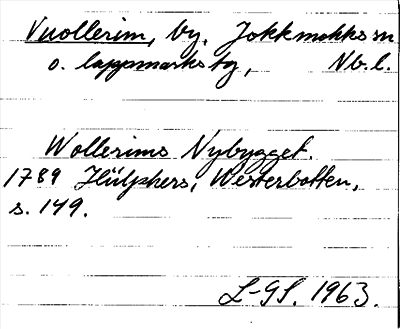 Vuollerim, by, Jokkmokks sn
o. lappmarks tg, Nb. l.
Wollerims Nybygget.
1789 Hülphers, Westerbotten,
s. 149.
L-GS. 1963.